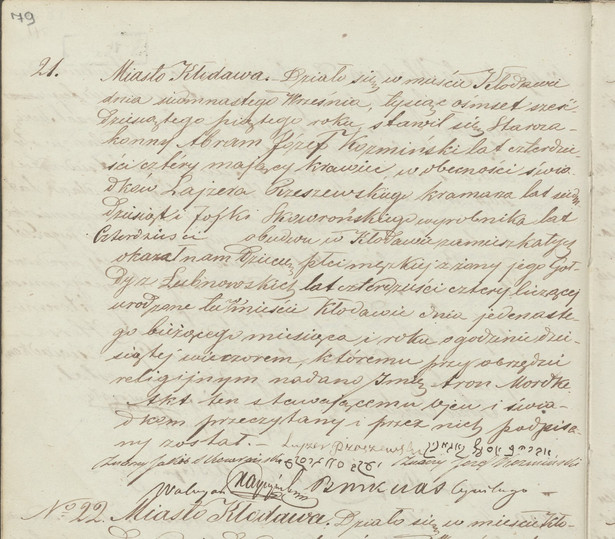 79
21. Miasto Kłodawa. Działo się w mieście Kłodawie
dnia siedmnastego Września, tysiąc ośmset sześć
dziesiątego piątego roku, stawił się Starza-
konny Abram Józef Koźminski lat czterdzie-
ści cztery mający krawiec, w obecności świa-
dków Lajzera Przeszewskiego kramarza lat
dziesiąt i Joska Skowrońskiego wyrobnika lat
Czterdzieści obudwu w Kłodawie zamieszkałych
okazał nam Dziecię płci męzkiej z żony jego Gol-
dy z Lubnowskich, lat czterdzieści cztery liczącej
urodzone tu w mieście Kłodawie dnia jedenaste-
go bieżącego miesiąca i roku o godzinie dzie-
siątej wieczorem, któremu przy obrzędzie
religijnym nadano Imię Aron Mordka
Akt ten stawającemu ojcu i świa-
dkom przeczytany i przez nich podpisa-
ny został.
Józef Kozminski
Cywilnego
No 22. Miasto Kłodawa. Działo się w mieście Kło-